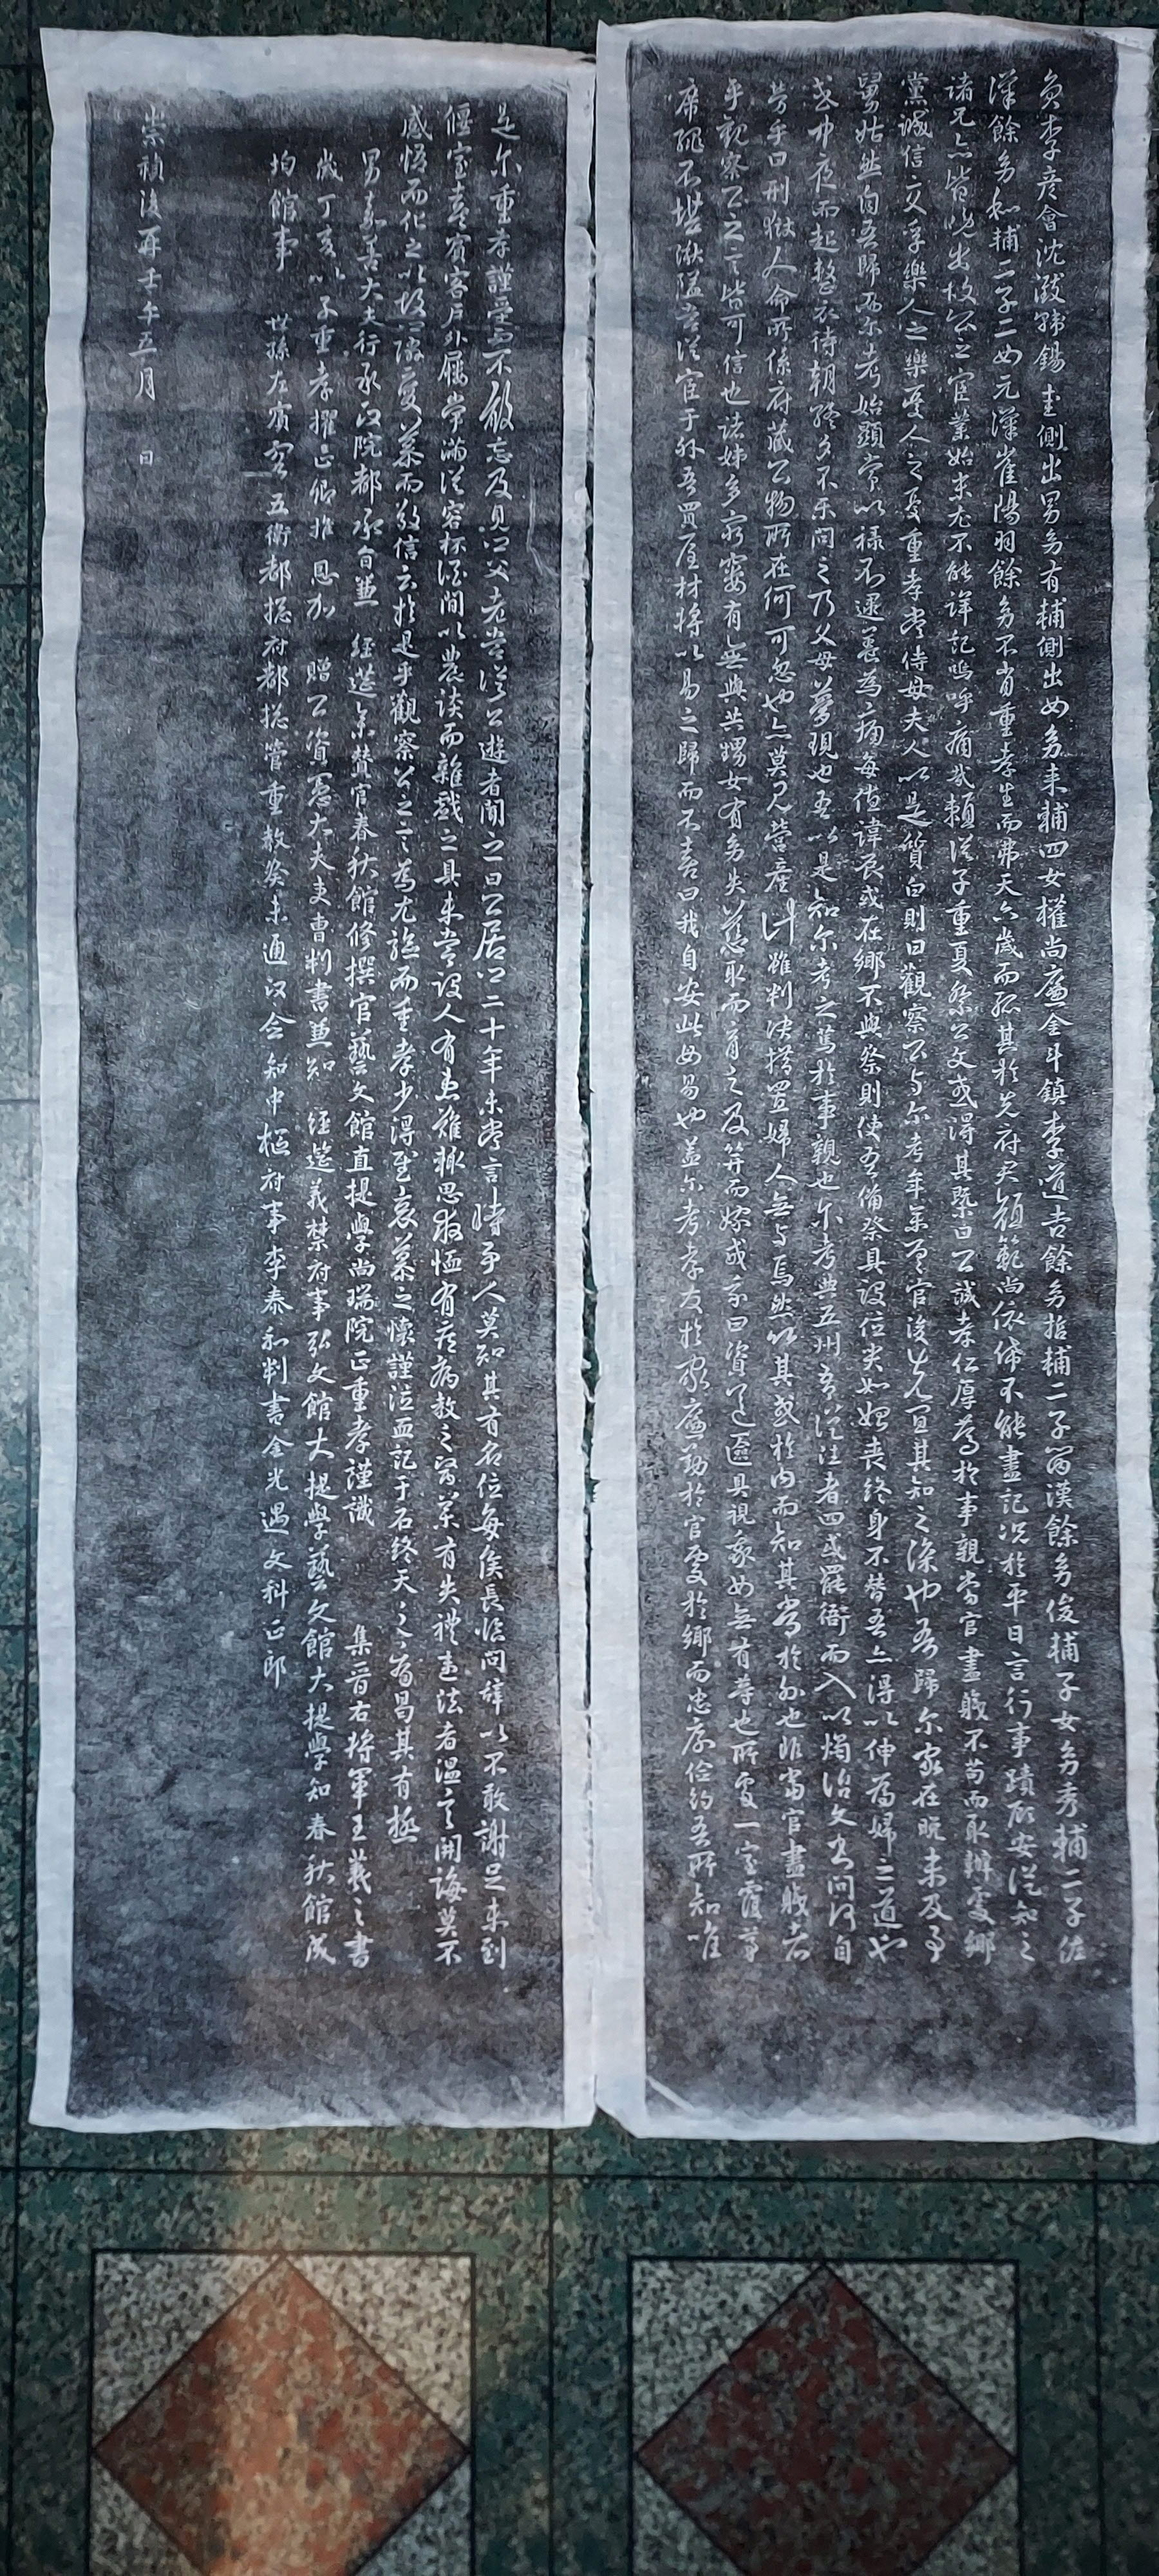 負李彦會沈潑韓錫圭側出男多有輔側出女多来輔四女權尚廉金斗鎮李道吉餘多哲輔二子翼漢餘多俊輔子女多秀輔二子佐
漢餘多和輔二子二女元漢崔陽羽餘多不肖重孝生而弗天六歲而孤其於先府君顔範尚依俙不能盡記况於平日言行事蹟所安從知之
諸兄亦皆晚出故公之官業始末尤不能詳記嗚呼痛哉賴從子重夏祭公文或得其槩曰公誠孝仁厚篤於事親當官盡職不苟而取辦處鄉
黨誠信交孚樂人之樂憂人之憂重孝嘗侍母夫人以是質白則曰觀察公与尔考年輩官後先宜其知之深也吾歸尔家在晚未及事
舅姑然自吾歸而尔考始顯常以祿不逮養為痛每值諱辰或在鄉不與祭則使吾備祭具設位哭如始喪終身不替吾亦得以伸為婦之道也
或中夜而起整衣待朝終夕不樂問之乃父母夢現也吾以是知尔考之篤於事親也尔考典五州吾從往者四或罷衙而入以燭治文書問何自
勞乎曰刑獄人命所係府藏公物所在何可忽也亦莫見營産計雖判决措置婦人無与焉然以其或於内而知其嘗於外也非當官盡職者
乎觀察公之言皆可信也諸姊多窮窶有無與共甥女有多失慈取而育之及笄而嫁成家曰資送匳具視家女無有等也所處一室霤茅
席繩不堪湫隘嘗從宦于外吾買屋材將以易之歸而不喜曰我自安此毋易也盖尔考孝友於家廉勤於官處於鄉而忠厚儉約吾所知唯
是尔重孝謹受而不敢忘及見口父老嘗從公遊者聞之曰公居口二十年未嘗言時爭人莫知其有名位每矦長臨問辭以不敢謝足未到
偃室喜賓客戶外屨常滿從容杯酒間以農談而雜戲之具未嘗設人有患難輒思救恤有疾病教之醫藥有失禮違法者温言開誨莫不
感悟而化之以故隣變慕而敬信云於是乎觀察公之言為尤驗而重孝少得至哀慕之懷謹泣血記于石終天之痛曷其有極
男嘉善大夫行承政院都承旨兼 經筵參贊官春秋館修撰官藝文館直提學尚瑞院正重孝謹識 集晋右將軍王羲之書
歲丁亥以子重孝擢正卿推 恩加 贈公資憲大夫吏曹判書兼知 經筵義禁府事弘文館大提學藝文館大提學知春秋館成
均館事 世孫左賓客 五衛都摠府都摠管重敎癸未通政僉知中樞府事李泰和判書金光遇文科正郎
崇禎後再壬午五月 日